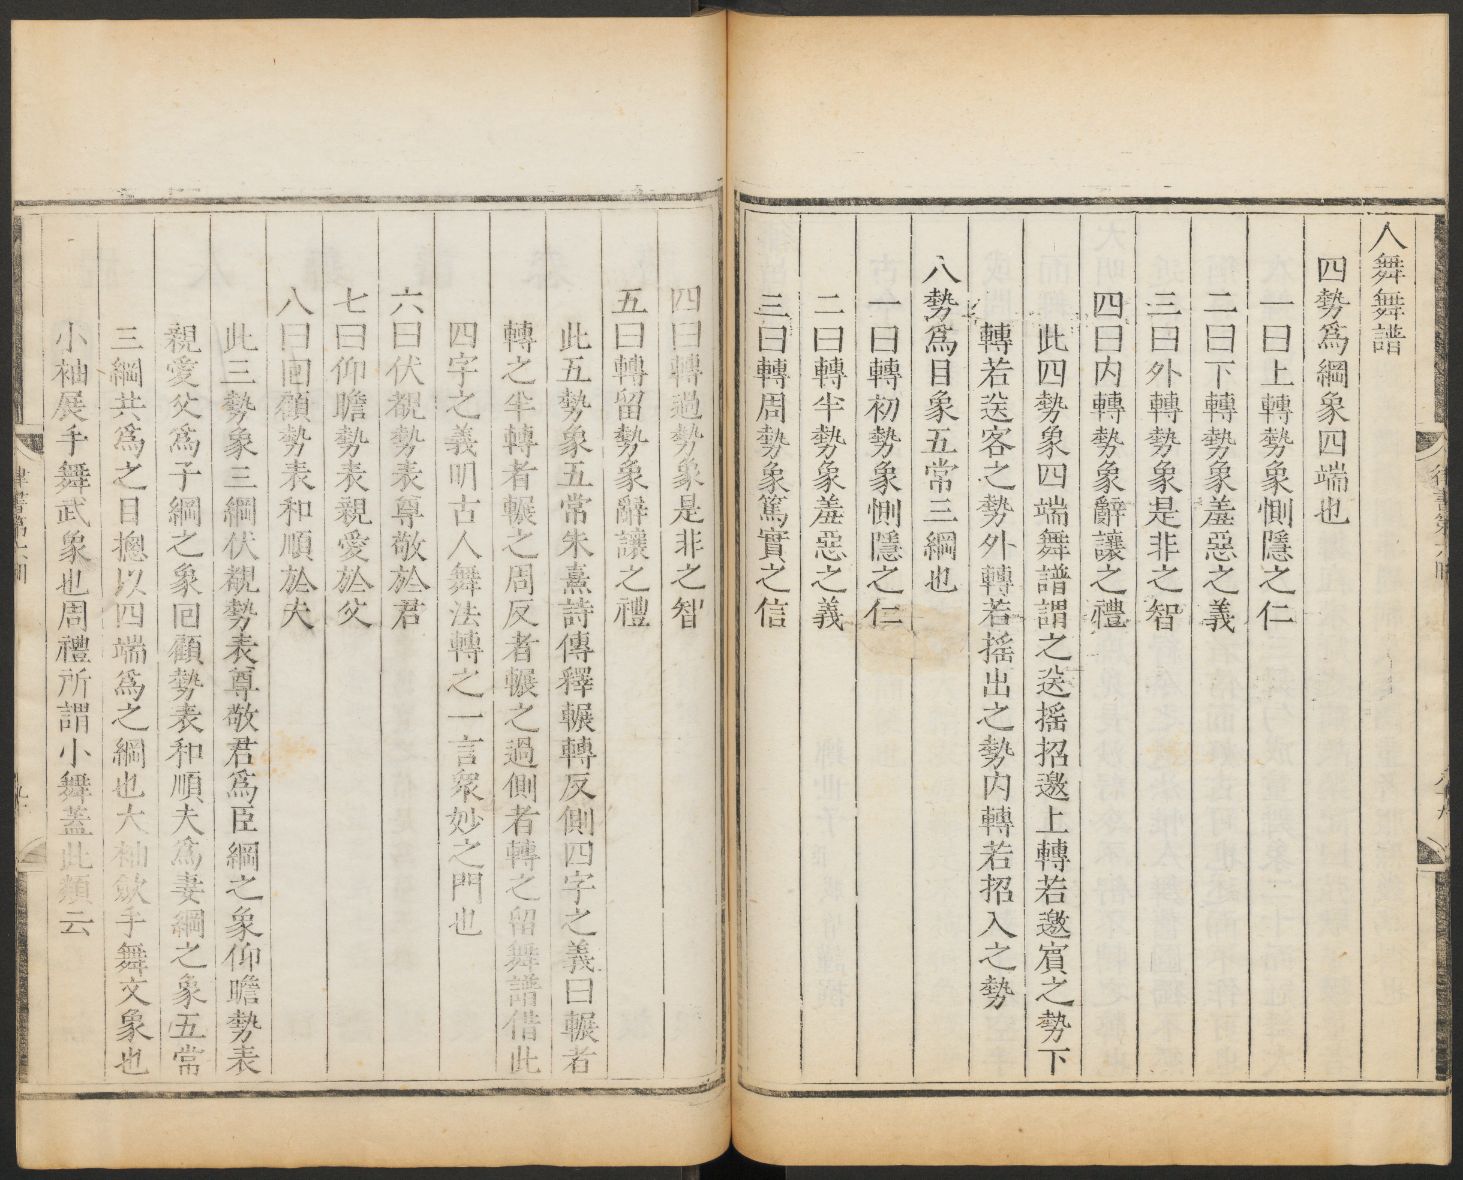 人舞舞譜
四勢爲綱象四端也
一曰上轉勢象惻隱之仁
二曰下轉勢象羞惡之義
三曰外轉勢象是非之智
四曰内轉勢象辭讓之禮
此四勢象四端舞譜謂之送搖招邀上轉若邀賔之勢下
轉若送客之勢外轉若搖出之勢内轉若招入之勢
八勢爲目象五常三綱也
一曰轉初勢象惻隱之仁
二曰轉半勢象羞惡之義
三曰轉周勢象篤實之信
四曰轉過勢象是非之智
五曰轉留勢象辭讓之禮
此五勢象五常朱熹詩傳釋輾轉反側四字之義曰輾者
轉之半轉者輾之周反者輾之過側者轉之留舞譜借此
四字之義明古人舞法轉之一言衆妙之門也
六曰伏覩勢表尊敬於君
七曰仰瞻勢表親愛於父
八曰囬顧勢表和順於夫
此三勢象三綱伏覩勢表尊敬君爲臣綱之象仰瞻勢表
親愛父爲子綱之象囘顧勢表和順夫爲妻綱之象五常
三綱共爲之目摠以四端爲之綱也大袖斂手舞文象也
小袖展手舞武象也周禮所謂小舞蓋此類云